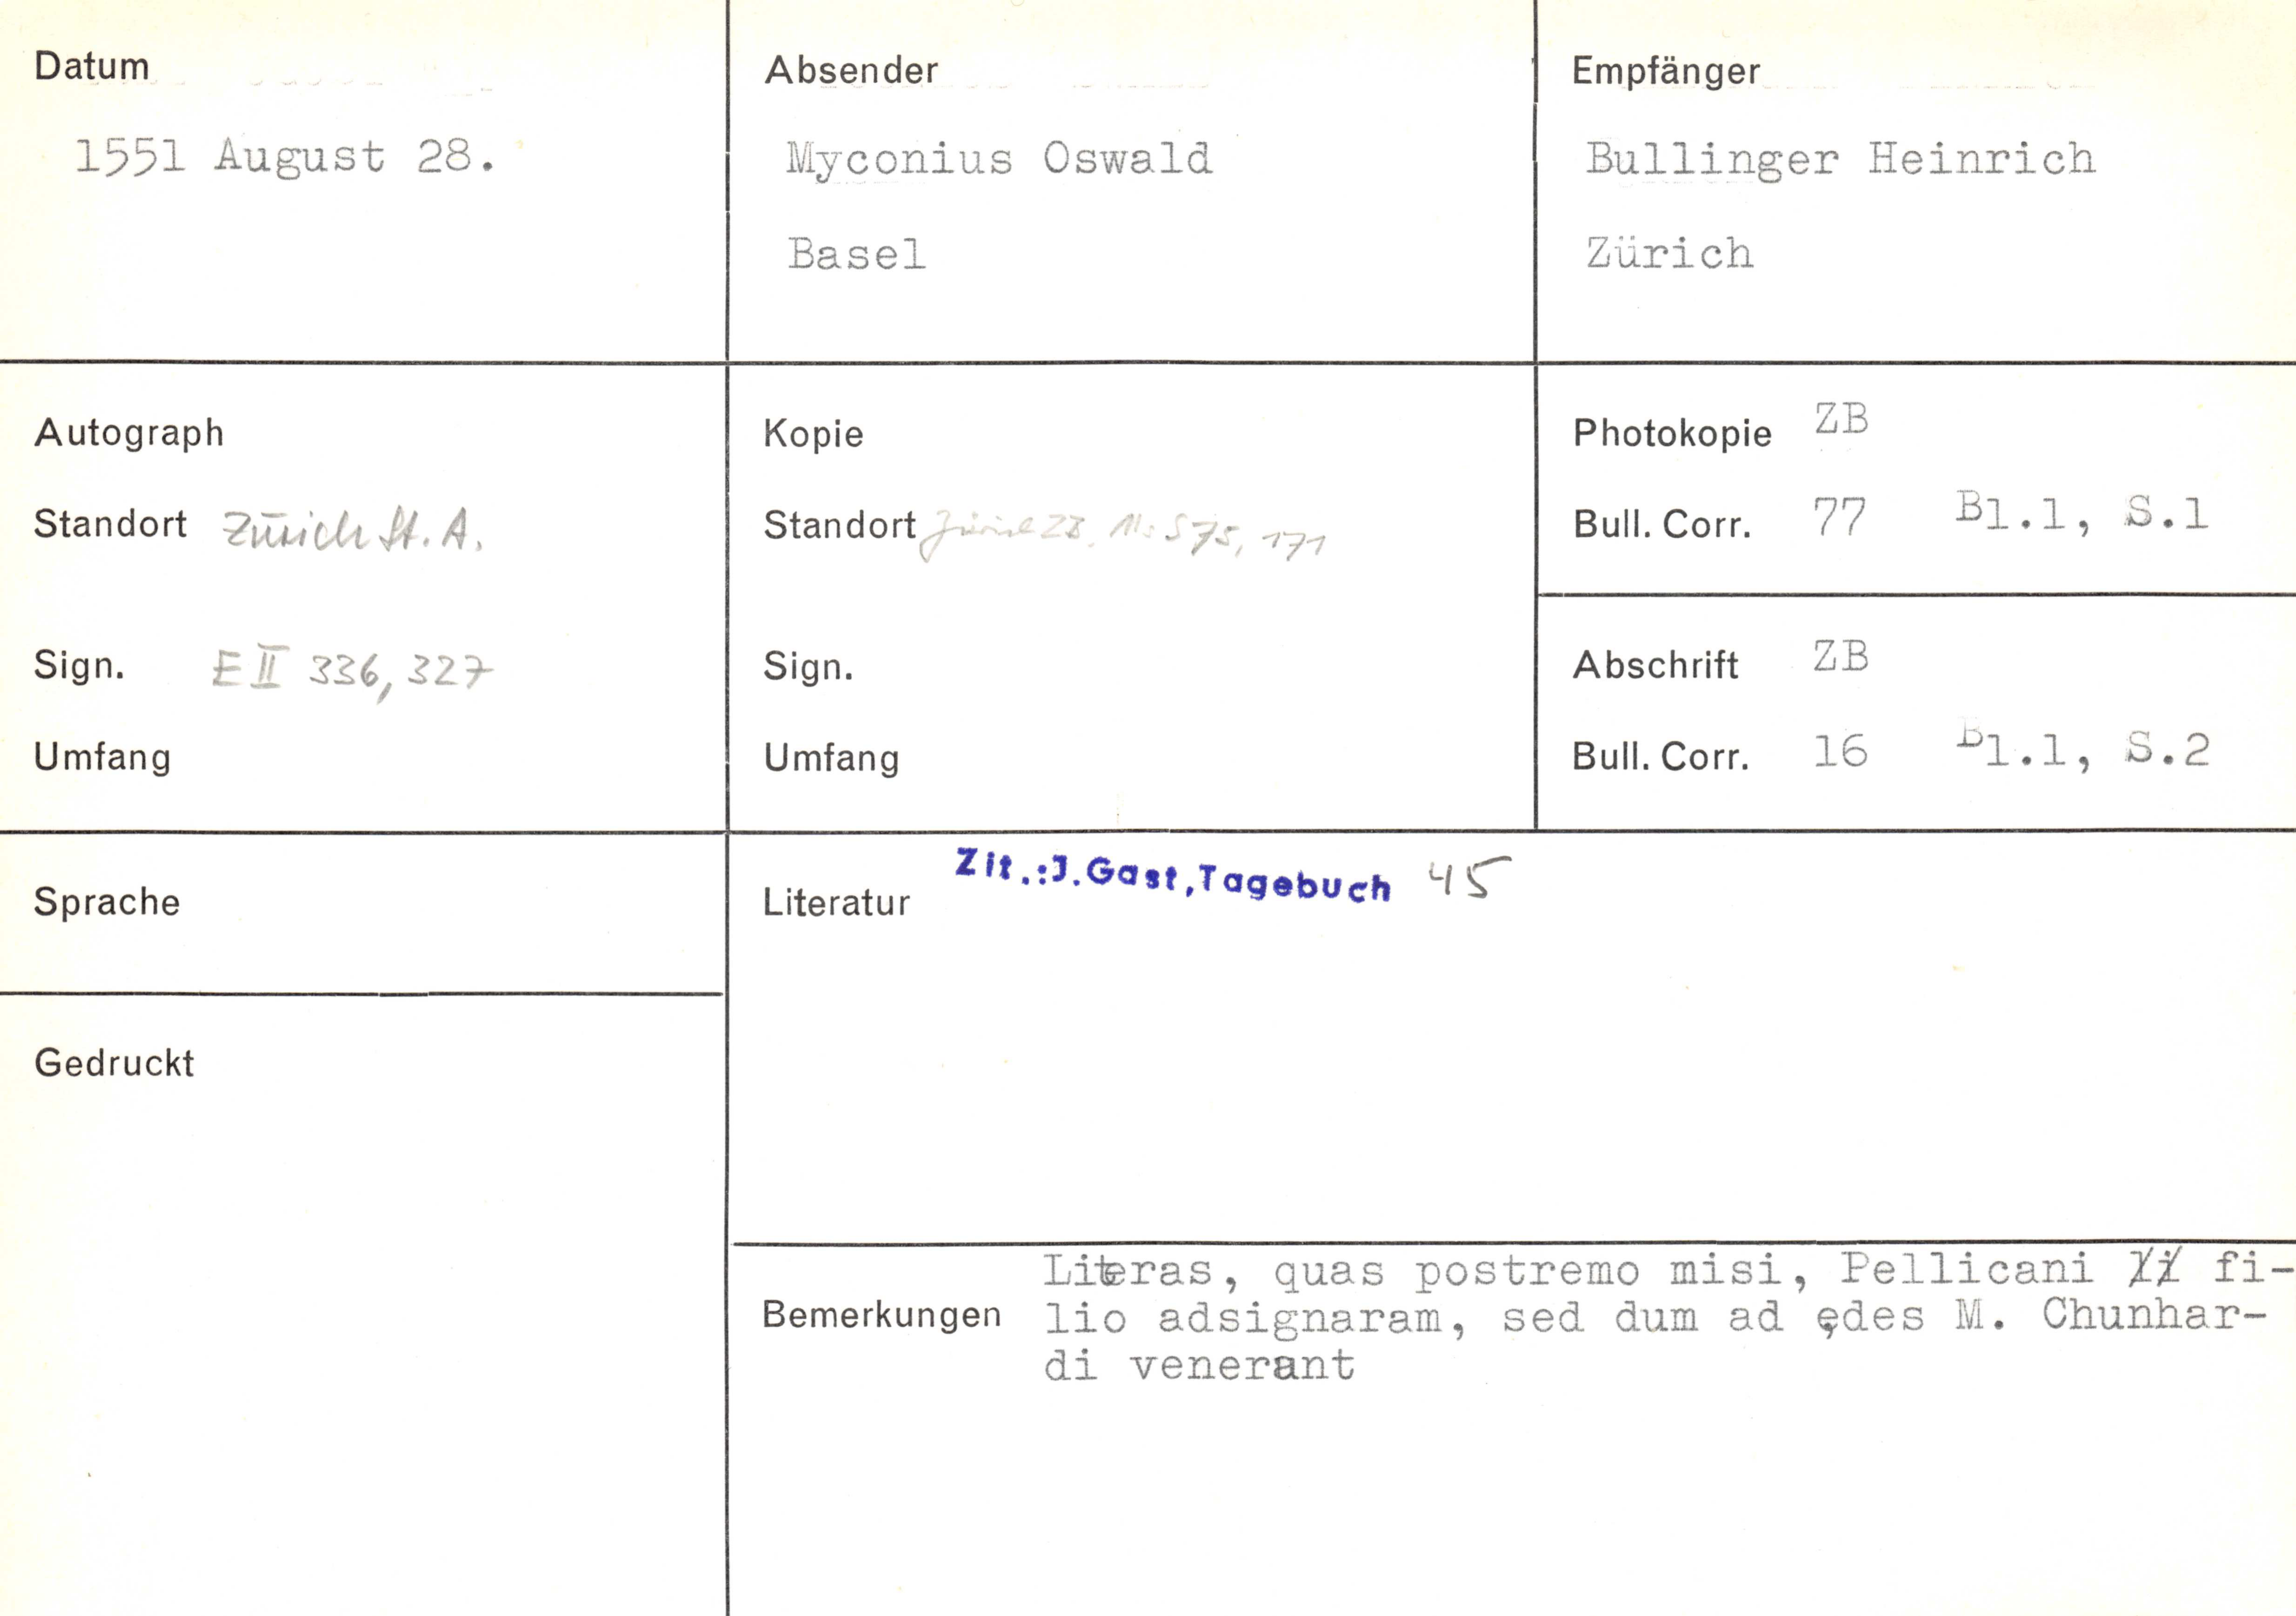 Datum
1551 August 28.
Absender
Myconius Oswald
Basel
Empfänger
Bullinger Heinrich
Zürich
Autograph
Standort Zürich St. A.
Sign. E II 336, 327
Umfang
Kopie
Standort Zürich ZB, Ms S 75, 171
Sign.
Umfang
Photokopie ZB
Bull. Corr. 77 Bl.1, S.1
Abschrift ZB
Bull. Corr. 16 Bl.1, S.2
Sprache
Gedruckt
Literatur Zit.: J. Gast, Tagebuch 45
Bemerkungen
Literas, quas postremo misi, Pellicani fi-
lio adsignaram, sed dum ad ędes M. Chunhar-
di venerant